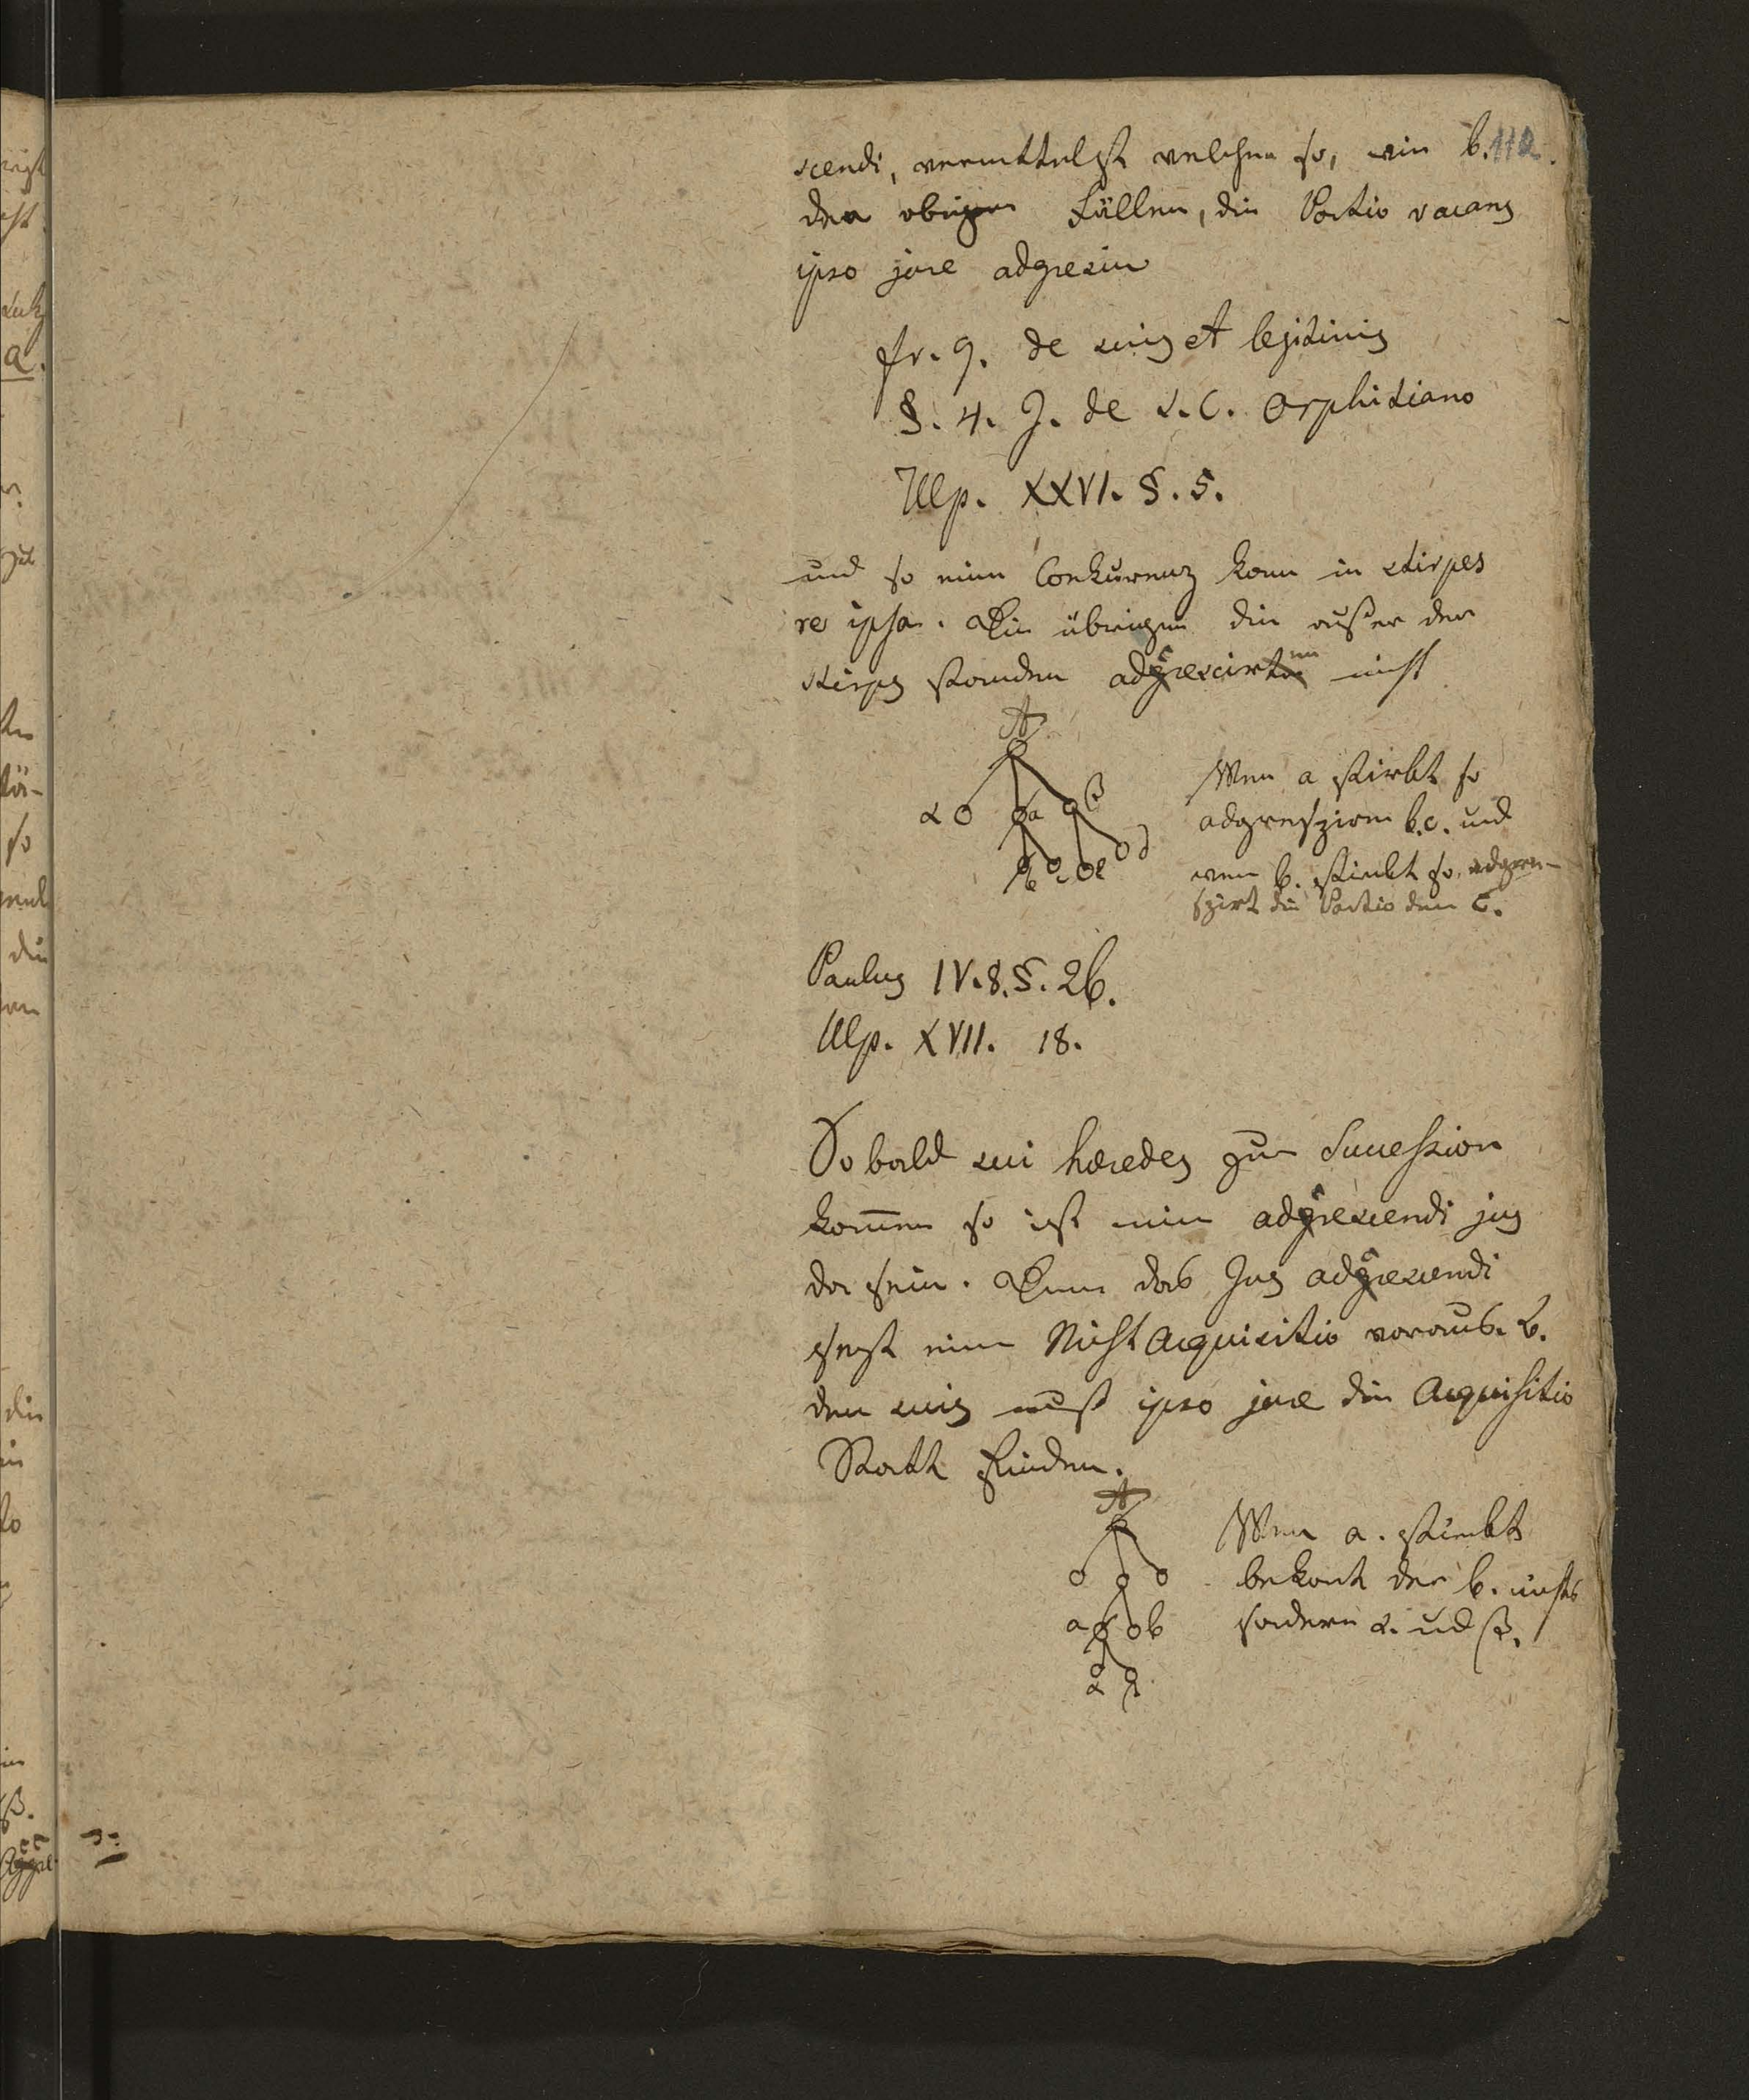 112.
scendi, vermittelst welchen so, wie b.
den obigen Fällen, die Portio vacans
ipso jure adgrescire
fr. 9. de suis et legitimis
§. 4. J. de S.C. Orphitiano
Ulp. XXVI. §. 5.
und so eine Conkurenz kom in stirpes
re ipsa. Die übrigen die außer der
stirps standen adcrescirten nicht
A
α a β
b c e d
Wen a stirbt so
adgresziren b.c. und
wen b. stirbt so adgre-
szirt die Portio dem c.
Paulus IV. 8. §. 26.
Ulp. XVII. 18.
So bald sui hæredes zur Succession
kom̅en so ist nie adcrescendi jus
da sein. Denn das Jus adcrescendi
sezt eine Nicht Acquisitio voraus. b.
den suis muß ipso jure die Acquisitio
Statt finden.
A
a b
α β
Wen a. stirbt
bekomt der b. nichts
sondern α. und β.